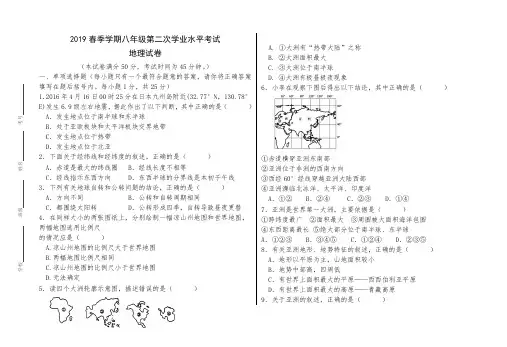 2019 春季学期八年级第二次学业水平考试
地理试卷
(本试卷满分 50 分,考试时间为 45 分钟。)
一、单项选择(每小题只有一个最符合题意的答案,请你将正确答案
填写在题后括号内。每小题 1 分,共 25 分)
1.2016 年 4 月 16 日 00 时 25 分在日本九州岛附近(32.77°N, 130.78°
E)发生 6.9 级左右地震,据此作出了以下判断,其中正确的是( )
A.发生地点位于南半球和东半球
B.处于亚欧板块和太平洋板块交界地带
C.发生地点位于热带
D.发生地点位于北亚
2.下面关于经纬线和经纬度的叙述,正确的是( )
A.赤道是最大的纬线圈 B.经线长度不相等
C.经线指示东西方向 D.东西半球的分界线是本初子午线
3.下列有关地球自转和公转问题的结论,正确的是( )
A.方向不同 B.公转和自转周期相同
C.都围绕太阳转 D.公转形成四季,自转导致昼夜更替
4.在同样大小的两张图纸上,分别绘制一幅凉山州地图和世界地图,
两幅地图选用比例尺
的情况应是( )
A.凉山州地图的比例尺大于世界地图
B.两幅地图比例尺相同
C.凉山州地图的比例尺小于世界地图
D.无法确定
5.读四个大洲轮廓示意图,描述错误的是( )
A.①大洲有“热带大陆”之称
B.②大洲面积最大
C.③大洲位于南半球
D.④大洲有极昼极夜现象
6.小羊在观察下图后得出以下结论,其中正确的是( )
①赤道横穿亚洲东南部
②亚洲位于非洲的西南方向
③西经 60°经线穿越亚洲大陆西部
④亚洲濒临北冰洋、太平洋、印度洋
A.①② B.②④ C.②③ D.①④
7.亚洲是世界第一大洲,主要依据是( )
①跨纬度最广 ②面积最大 ③周围被大面积海洋包围
④东西距离最长 ⑤绝大部分位于北半球、东半球
A.①②③ B.③④⑤ C.①②④ D.②③⑤
8.有关亚洲地形、地势特征的叙述,正确的是( )
A.地形以平原为主,山地面积较小
B.地势中部高,四周低
C.有世界上面积最大的平原——西西伯利亚平原
D.有世界上面积最大的高原——青藏高原
9.关于亚洲的叙述,正确的是( )